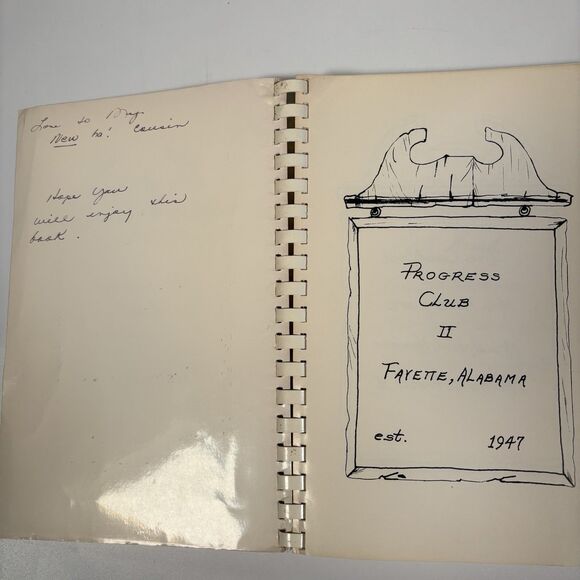 Love to my
New ha! cousin
Hope you
will enjoy this
book.
PROGRESS
CLUB
II
FAYETTE, ALABAMA
est. 1947